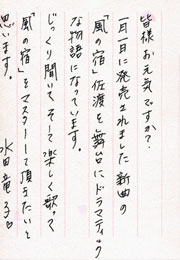 皆様お元気ですか?
一月一日に発売されました新曲の
「風の宿」佐渡を舞台にドラマティック
な物語になっています。
じっくり聞いて、そして楽しく歌って
「風の宿」をマスターして頂きたいと
思います。
水田竜子♡